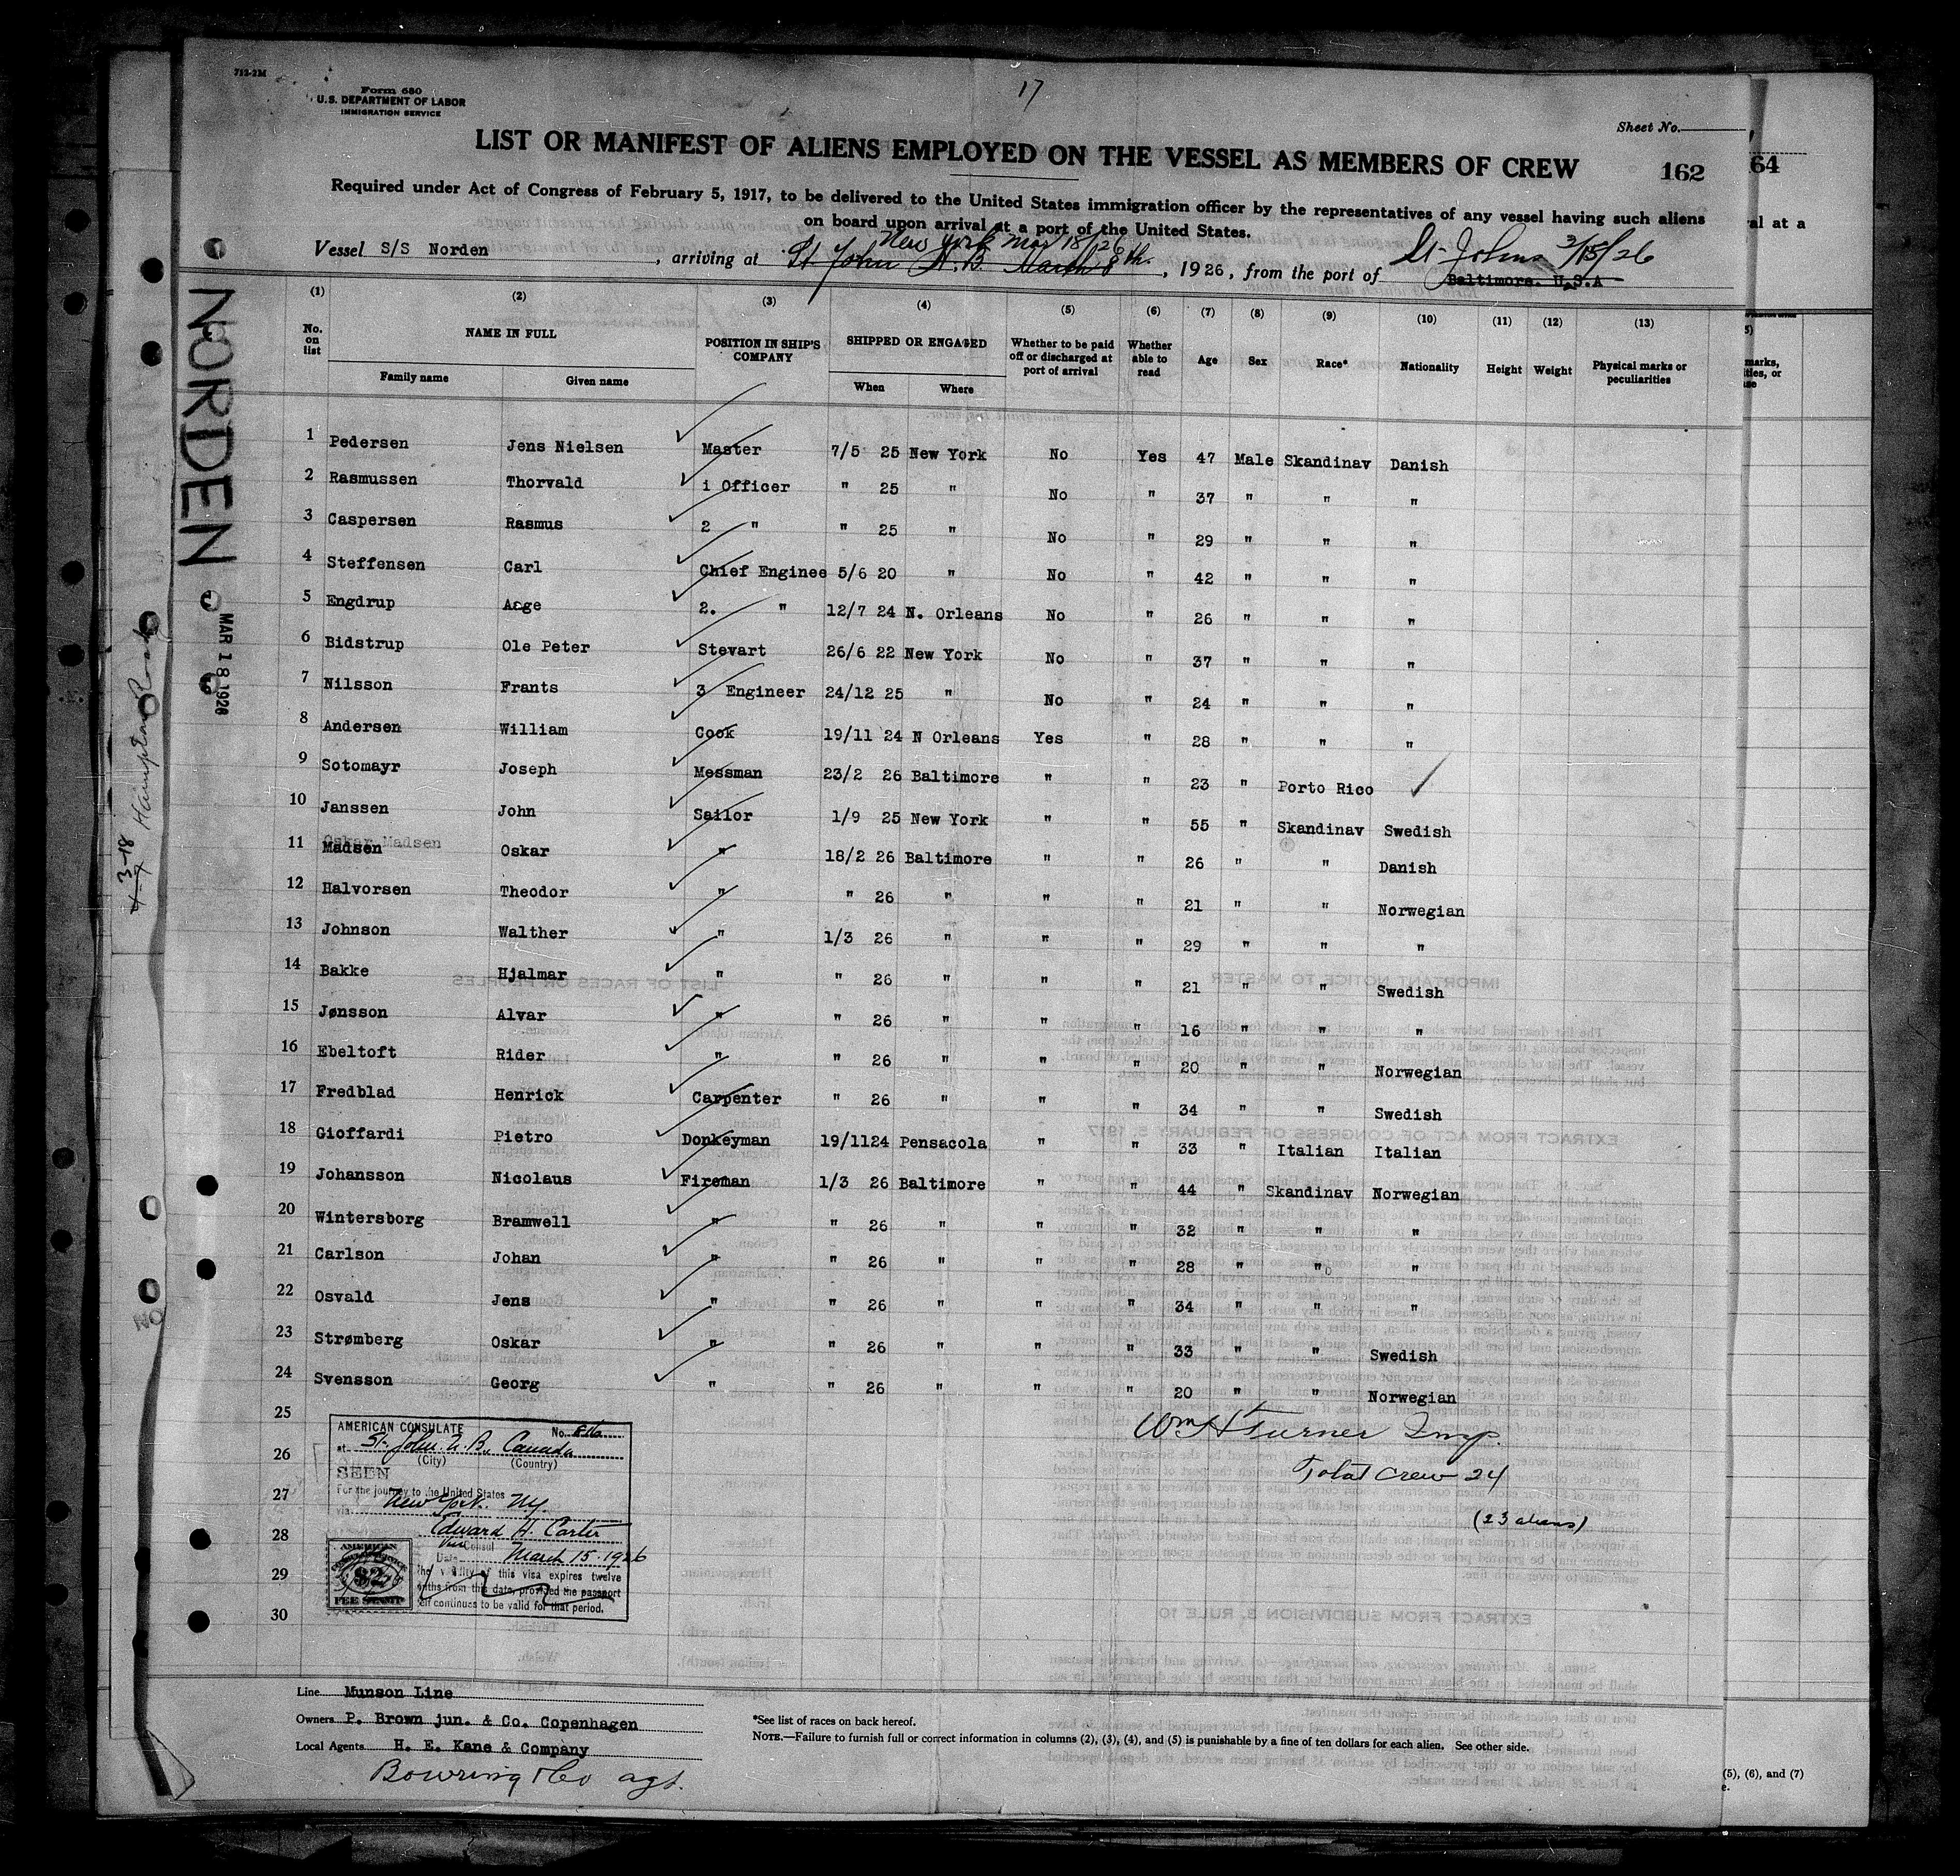 712-2M
Form 680
U.S. DEPARTMENT OF LABOR
IMMIGRATION SERVICE
17
Sheet No.
LIST OR MANIFEST OF ALIENS EMPLOYED ON THE VESSEL AS MEMBERS OF CREW
162
64
Required under Act of Congress of February 5, 1917, to be delivered to the United States immigration officer by the representatives of any vessel having such aliens
on board upon arrival at a port of the United States.
al at a
New York Mar 18/26
Vessel S/S Norden, arriving at St John N.B. March 8th, 1926, from the port of St Johns 3/15/26
Baltimore. U.S.A
NORDEN
MAR 18 1926
3-18
(1) (2) (3) (4) (5) (6) (7) (8) (9) (10) (11) (12) (13)
No. on list NAME IN FULL POSITION IN SHIP'S COMPANY SHIPPED OR ENGAGED Whether to be paid off or discharged at port of arrival Whether able to read Age Sex Race* Nationality Height Weight Physical marks or peculiarities
Family name Given name When Where
1 Pedersen Jens Nielsen Master 7/5 25 New York No Yes 47 Male Skandinav Danish
2 Rasmussen Thorvald i Officer " 25 " No " 37 " " "
3 Caspersen Rasmus 2 " " 25 " No " 29 " " "
4 Steffensen Carl Chief Enginee 5/6 20 " No " 42 " " "
5 Engdrup Aage 2. " 12/7 24 N. Orleans No " 26 " " "
6 Bidstrup Ole Peter Stevart 26/6 22 New York No " 37 " " "
7 Nilsson Frants 3 Engineer 24/12 25 " No " 24 " " "
8 Andersen William Cook 19/11 24 N Orleans Yes " 28 " " "
9 Sotomayr Joseph Messman 23/2 26 Baltimore " " 23 " Porto Rico
10 Janssen John Sailor 1/9 25 New York " " 55 " Skandinav Swedish
Oskar Madsen
11 Madsen Oskar " 18/2 26 Baltimore " " 26 " " Danish
12 Halvorsen Theodor " " 26 " " " 21 " " Norwegian
13 Johnson Walther " 1/3 26 " " " 29 " " "
14 Bakke Hjalmar " " 26 " " " 21 " " Swedish
15 Jønsson Alvar " " 26 " " " 16 " " "
16 Ebeltoft Rider " " 26 " " " 20 " " Norwegian
17 Fredblad Henrick Carpenter " 26 " " " 34 " " Swedish
18 Gioffardi Pietro Donkeyman 19/1124 Pensacola " " 33 " Italian Italian
19 Johansson Nicolaus Fireman 1/3 26 Baltimore " " 44 " Skandinav Norwegian
20 Wintersborg Bramwell " " 26 " " " 32 " " "
21 Carlson Johan " " 26 " " " 28 " " "
22 Osvald Jens " " 26 " " " 34 " " "
23 Strømberg Oskar " " 26 " " " 33 " " Swedish
24 Svensson Georg " " 26 " " " 20 " " Norwegian
25
26
27
28
29
30
Wm H Turner Insp.
Total Crew 24
(23 aliens)
AMERICAN CONSULATE No.
at St. John. N.B. Canada
(City) (Country)
SEEN
For the journey to the United States
via New York. N.Y.
Edward H. Carter
Vice Consul
Date March 15-1926
The validity of this visa expires twelve
months from this date, provided the passport
itself continues to be valid for that period.
AMERICAN
$2
FEE STAMP
Line Munson Line
Owners P. Brown jun. & Co. Copenhagen
Local Agents H. E. Kane & Company
Bowring & Co agt.
*See list of races on back hereof.
NOTE.—Failure to furnish full or correct information in columns (2), (3), (4), and (5) is punishable by a fine of ten dollars for each alien. See other side.
(5), (6), and (7)